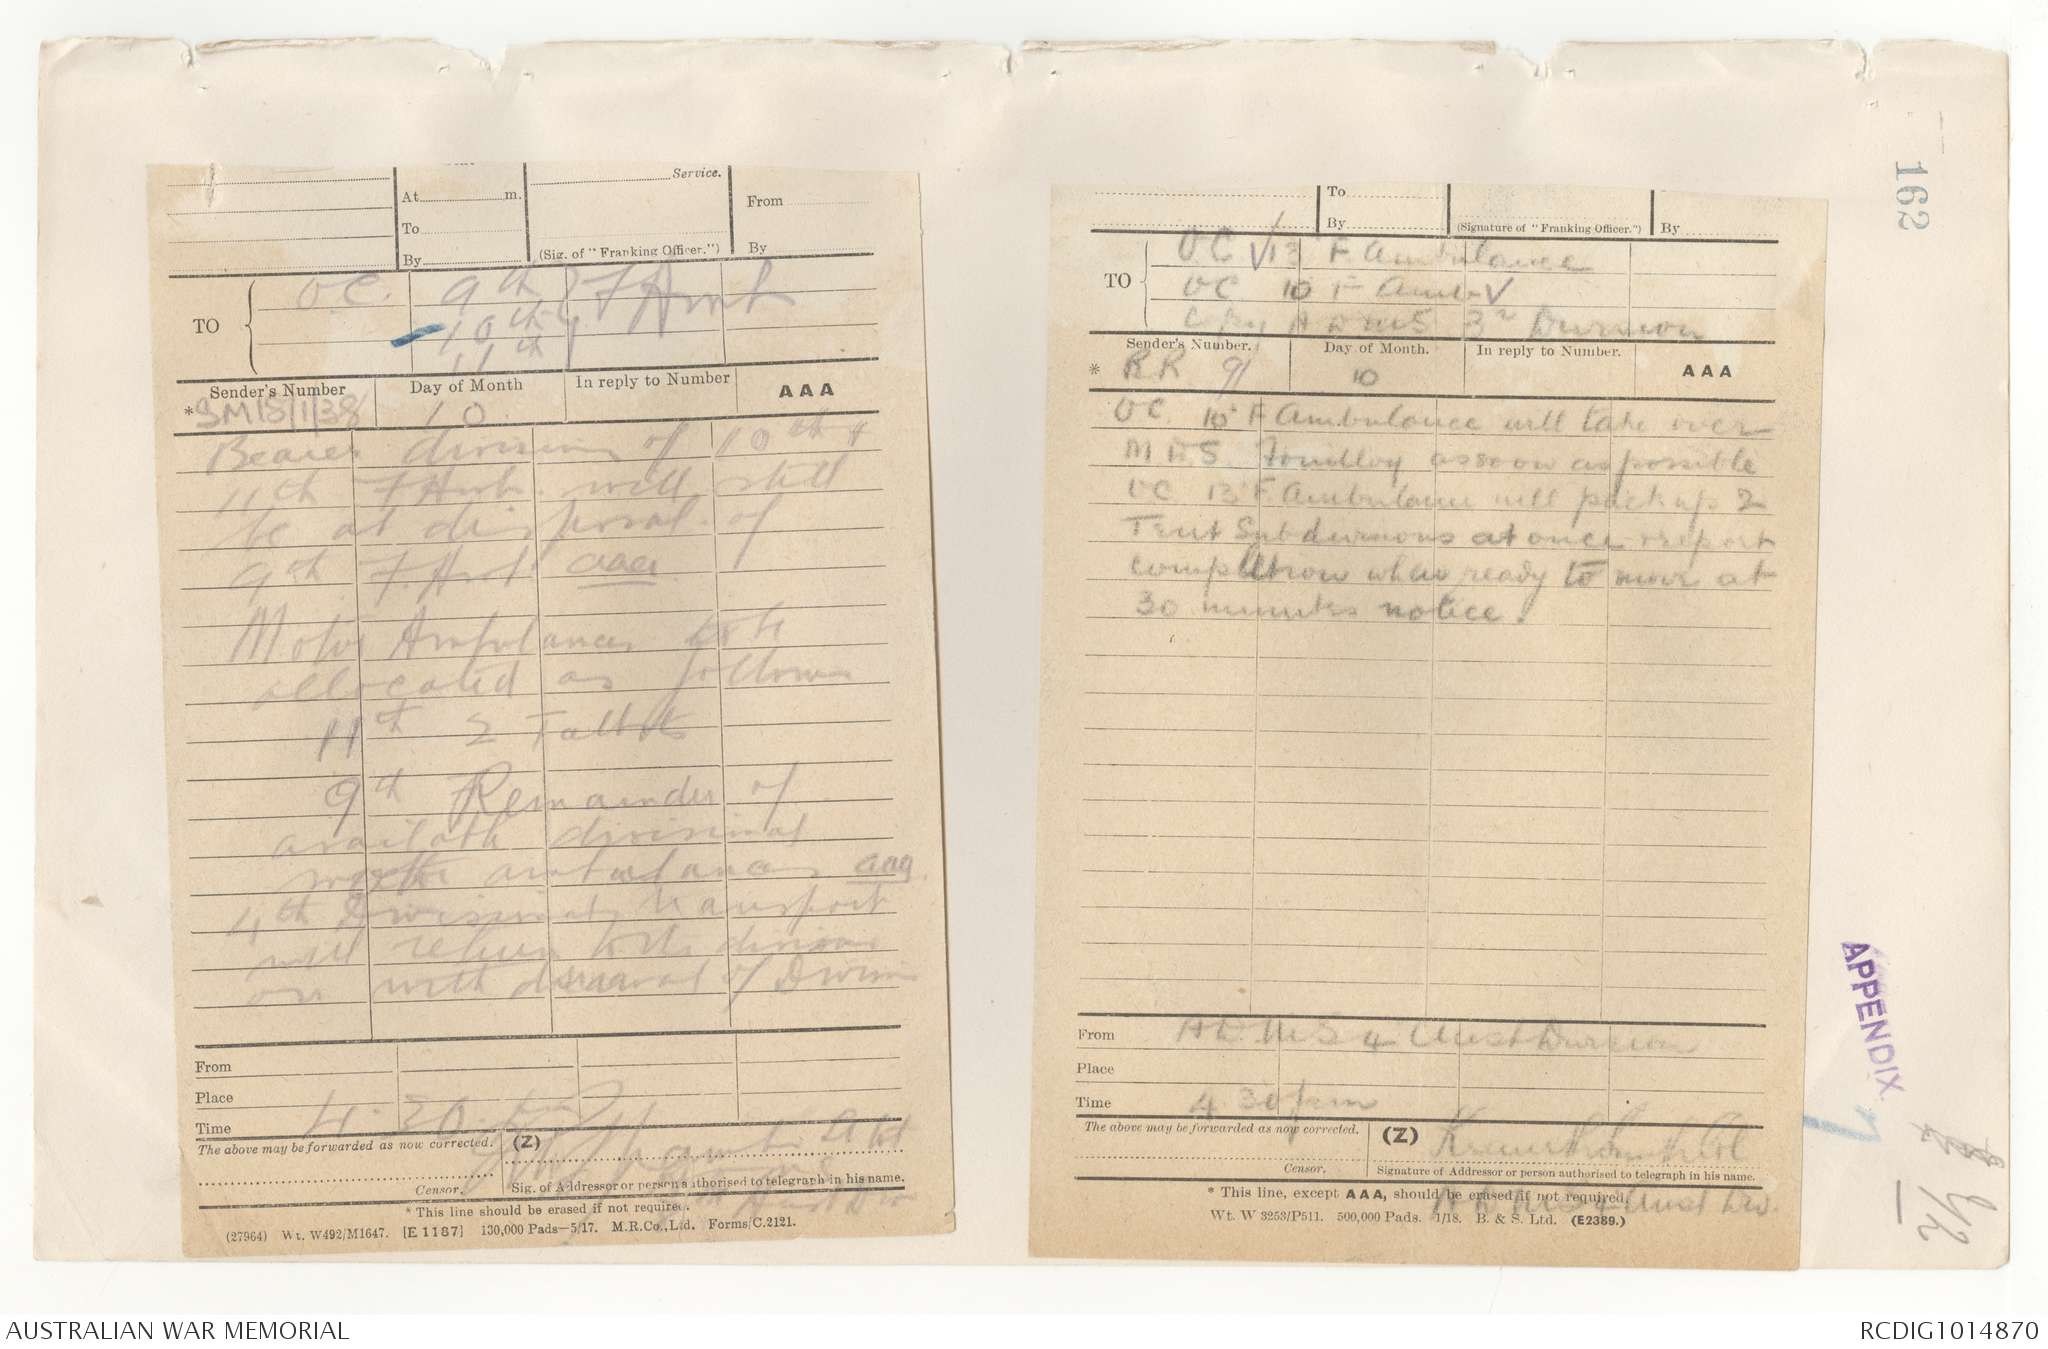 Service.
At m.
To
By
(Sig. of "Franking Officer.")
From
By
TO
OC. 9th F Amb
10th
11th
Sender's Number
Day of Month
In reply to Number
AAA
* SM15/1/38
10
Bearer divisions of 10th &
11th F. Amb. will still
be at disposal of
9th F. Amb aaa
Motor Ambulances to be
allocated as follows
11th 2 Talbots
9th Remainder of
available divisional
motor ambulances aaa
4th Divisional transport
will return to its division
on with
of Division
From
Place
Time
4.30
The above may be forwarded as now corrected.
(Z)
Censor.
Sig. of Addressor or person authorised to telegraph in his name.
* This line should be erased if not required.
(27964) Wt. W492/M1647. [E 1187] 130,000 Pads—5/17. M.R.Co., Ltd. Forms/C.2121.
To
By
(Signature of "Franking Officer.")
By
TO
OC 13 F Ambulance
OC 10 F Amb
Copy ADMS 3rd Division
Sender's Number.
Day of Month.
In reply to Number.
AAA
* RR 91
10
OC. 10 F Ambulance will take over
MDS as soon as possible
OC 13 F. Ambulance will pack up 2
Tent Subdivisions at once & report
completion when ready to move at
30 minutes notice.
From
ADMS 4 Aust Division
Place
Time
4 30 pm
The above may be forwarded as now corrected.
(Z)
Censor.
Signature of Addressor or person authorised to telegraph in his name.
* This line, except AAA, should be erased if not required.
ADMS 4 Aust Div.
Wt. W 3253/P511. 500,000 Pads. 1/18. B. & S. Ltd. (E2389.)
162
APPENDIX
7
AUSTRALIAN WAR MEMORIAL
RCDIG1014870